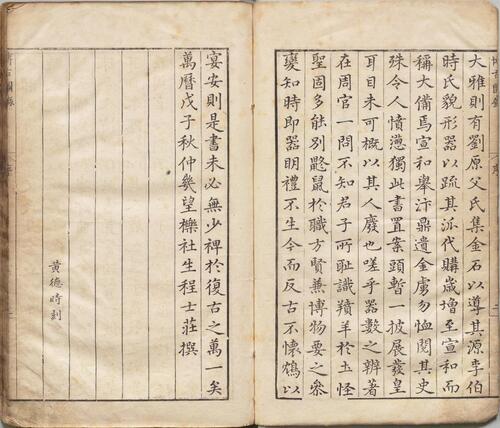 大雅則有劉原父氏集金石以導其源李伯
時氏貌形器以疏其派代購歲增至宣和而
稱大備焉宣和舉汴鼎遺金虜勿恤閱其史
殊令人憤懣獨此書置案頭暫一披展發皇
耳目未可概以其人廢也嗟乎器數之辨著
在周官一問不知君子所恥識羵羊於土怪
聖固多能別鼮鼠於職方賢兼博物要之祭
襃知時即器明禮不生今而反古不懷鴆以
宴安則是書未必無少裨於復古之萬一矣
萬曆戊子秋仲幾望櫟社生程士莊撰
黃德時刻